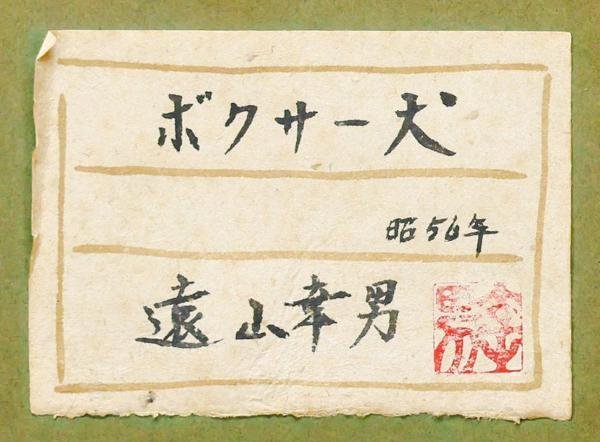 ボクサー犬
昭56年
遠山幸男